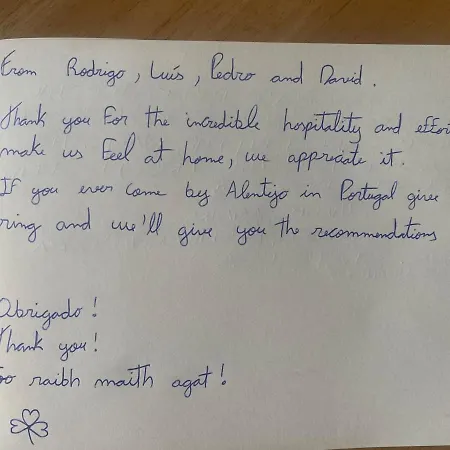 From Rodrigo, Luís, Pedro and David.
Thank you For the incredible hospitality and
make us Feel at home, we appreciate it.
IF you ever come by Alentejo in Portugal give
ring and we'll give you the recommendations
Obrigado!
Thank you!
raibh maith agat!